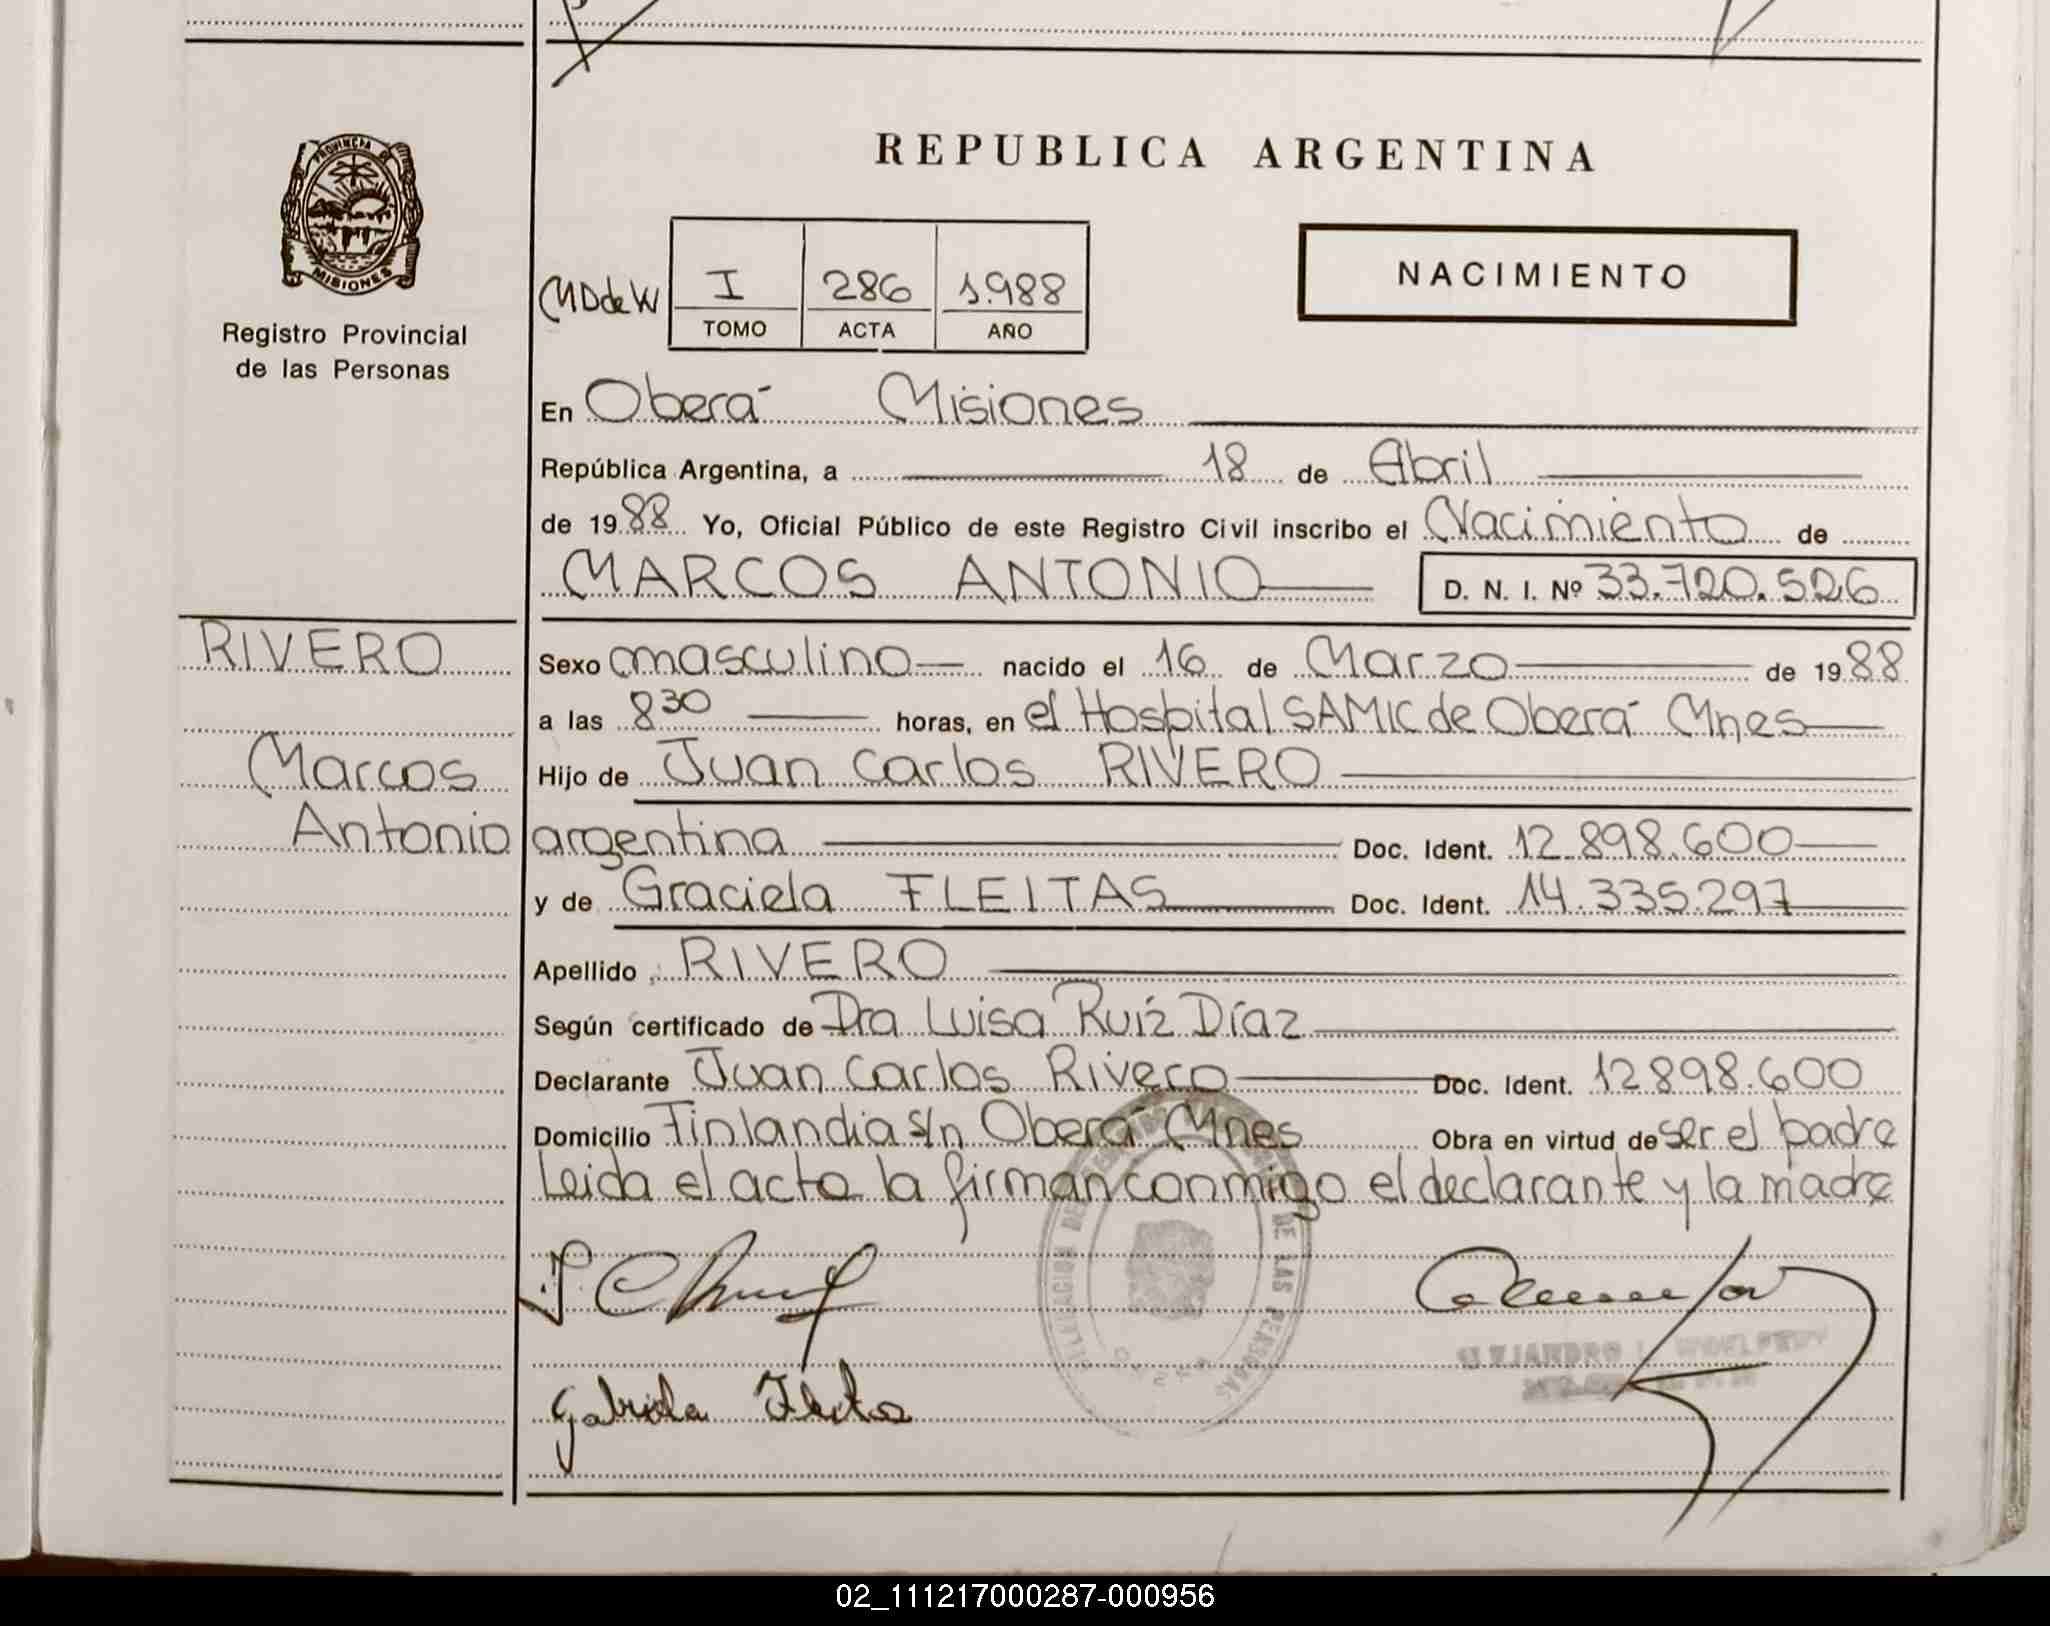 REPUBLICA ARGENTINA
PROVINCIA DE
MISIONES
Registro Provincial
de las Personas
NACIMIENTO
MDdeW I 286 1.988
TOMO ACTA AÑO
En Oberá Misiones
República Argentina, a 18 de Abril
de 1988 Yo, Oficial Público de este Registro Civil inscribo el Nacimiento de
MARCOS ANTONIO D. N. I. Nº 33.720.526
RIVERO
Marcos
Antonio
Sexo masculino nacido el 16 de Marzo de 1988
a las 8 30 horas, en el Hospital SAMIC de Oberá Mnes
Hijo de Juan Carlos RIVERO
argentina Doc. Ident. 12.898.600
y de Graciela FLEITAS Doc. Ident. 14.335.297
Apellido RIVERO
Según certificado de Dra Luisa Ruíz Díaz
Declarante Juan Carlos Rivero Doc. Ident. 12898.600
Domicilio Finlandia s/n Oberá Mnes Obra en virtud de ser el padre
Leida el acta la firman conmigo el declarante y la madre
DE LAS PERSONAS
ALEJANDRO
02_111217000287-000956